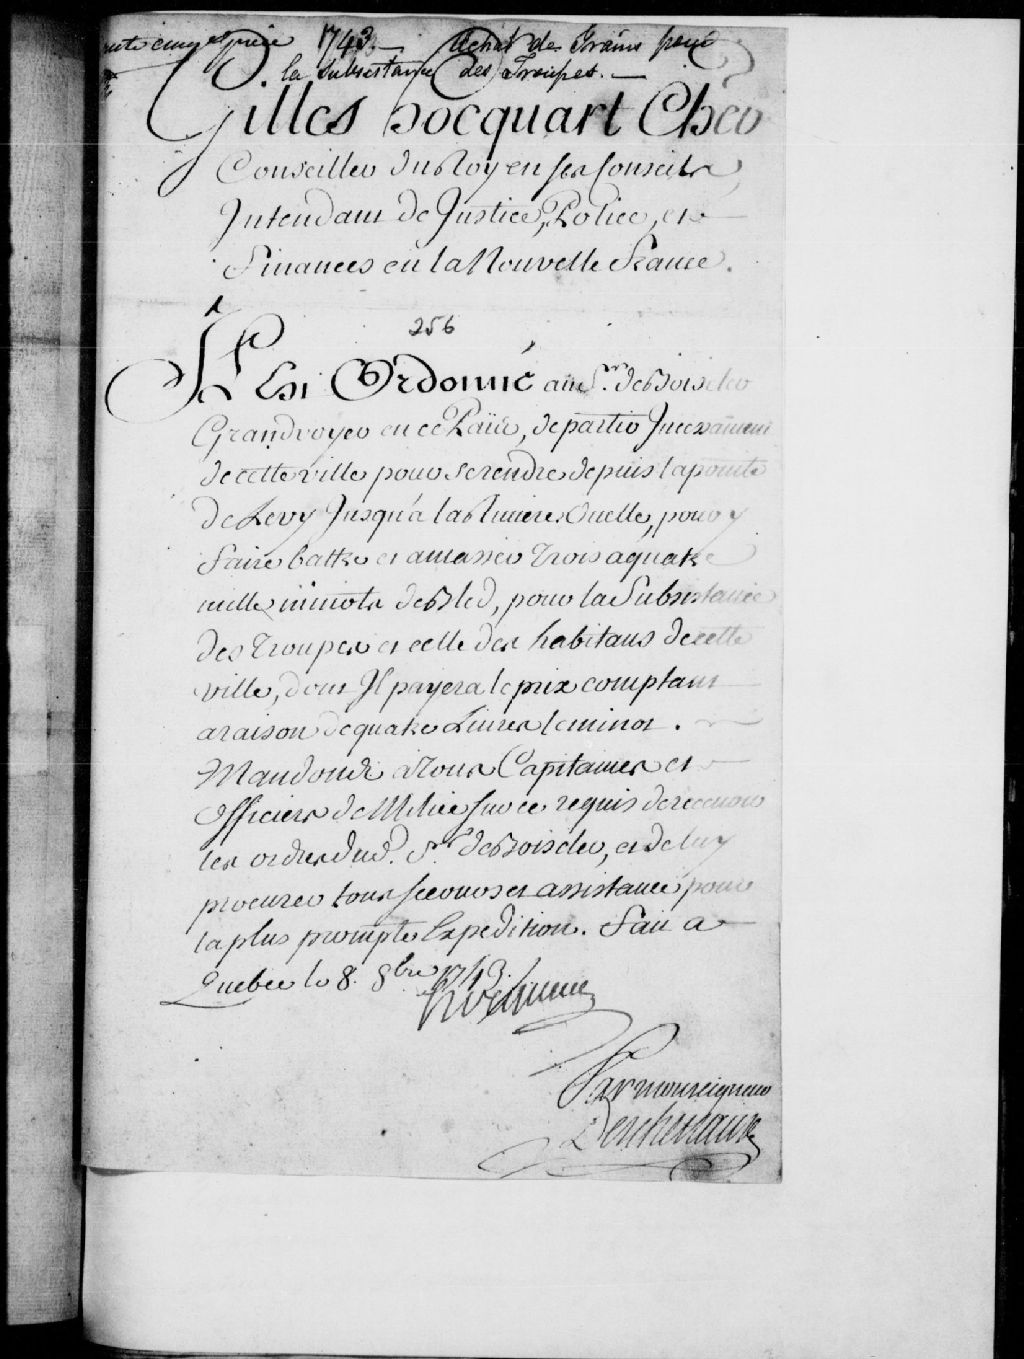 1743. — Achat de Grains pour
la subsistance des Troupes. —
Gilles hocquart Chev
Conseiller du Roy en ses Conseils
Intendant de Justice, Police, et
Finances en la Nouvelle France.
256
Il Est Ordonné au Sr. de Boisclerc
Grandvoyer en ce Païs, de partir Incessamment
de cette ville pour se rendre depuis la pointe
de Levy Jusqu'a la Riviere Ouelle, pour y
faire battre et amasser trois a quatre
mille minots de Bled, pour la Subsistance
des troupes et celle des habitans de cette
ville, dont Il payera le prix comptant
a raison de quatre Livres le minot.
Mandons à tous Capitaines et
officiers de Milice sur ce requis de recevoir
les ordres dud. Sr. de Boisclerc, et de luy
procurer tous secours et assistance pour
la plus prompte Expedition. Fait a
Quebec le 8. 8bre 1743.
Par monseigneur